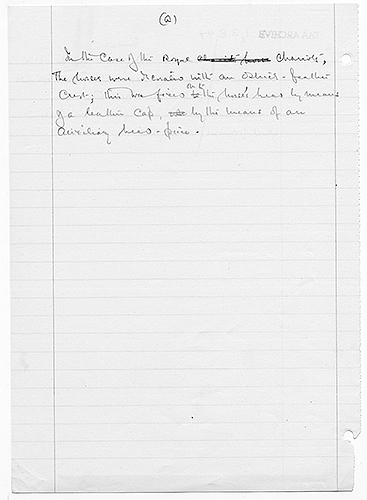 (2)
In the case of the Royal chariots,
the horses were decorated with an ostrich-feather
crest; this was fixed on to the horse's head by means
of a leather cap, by the means of an
auxiliary head-piece.